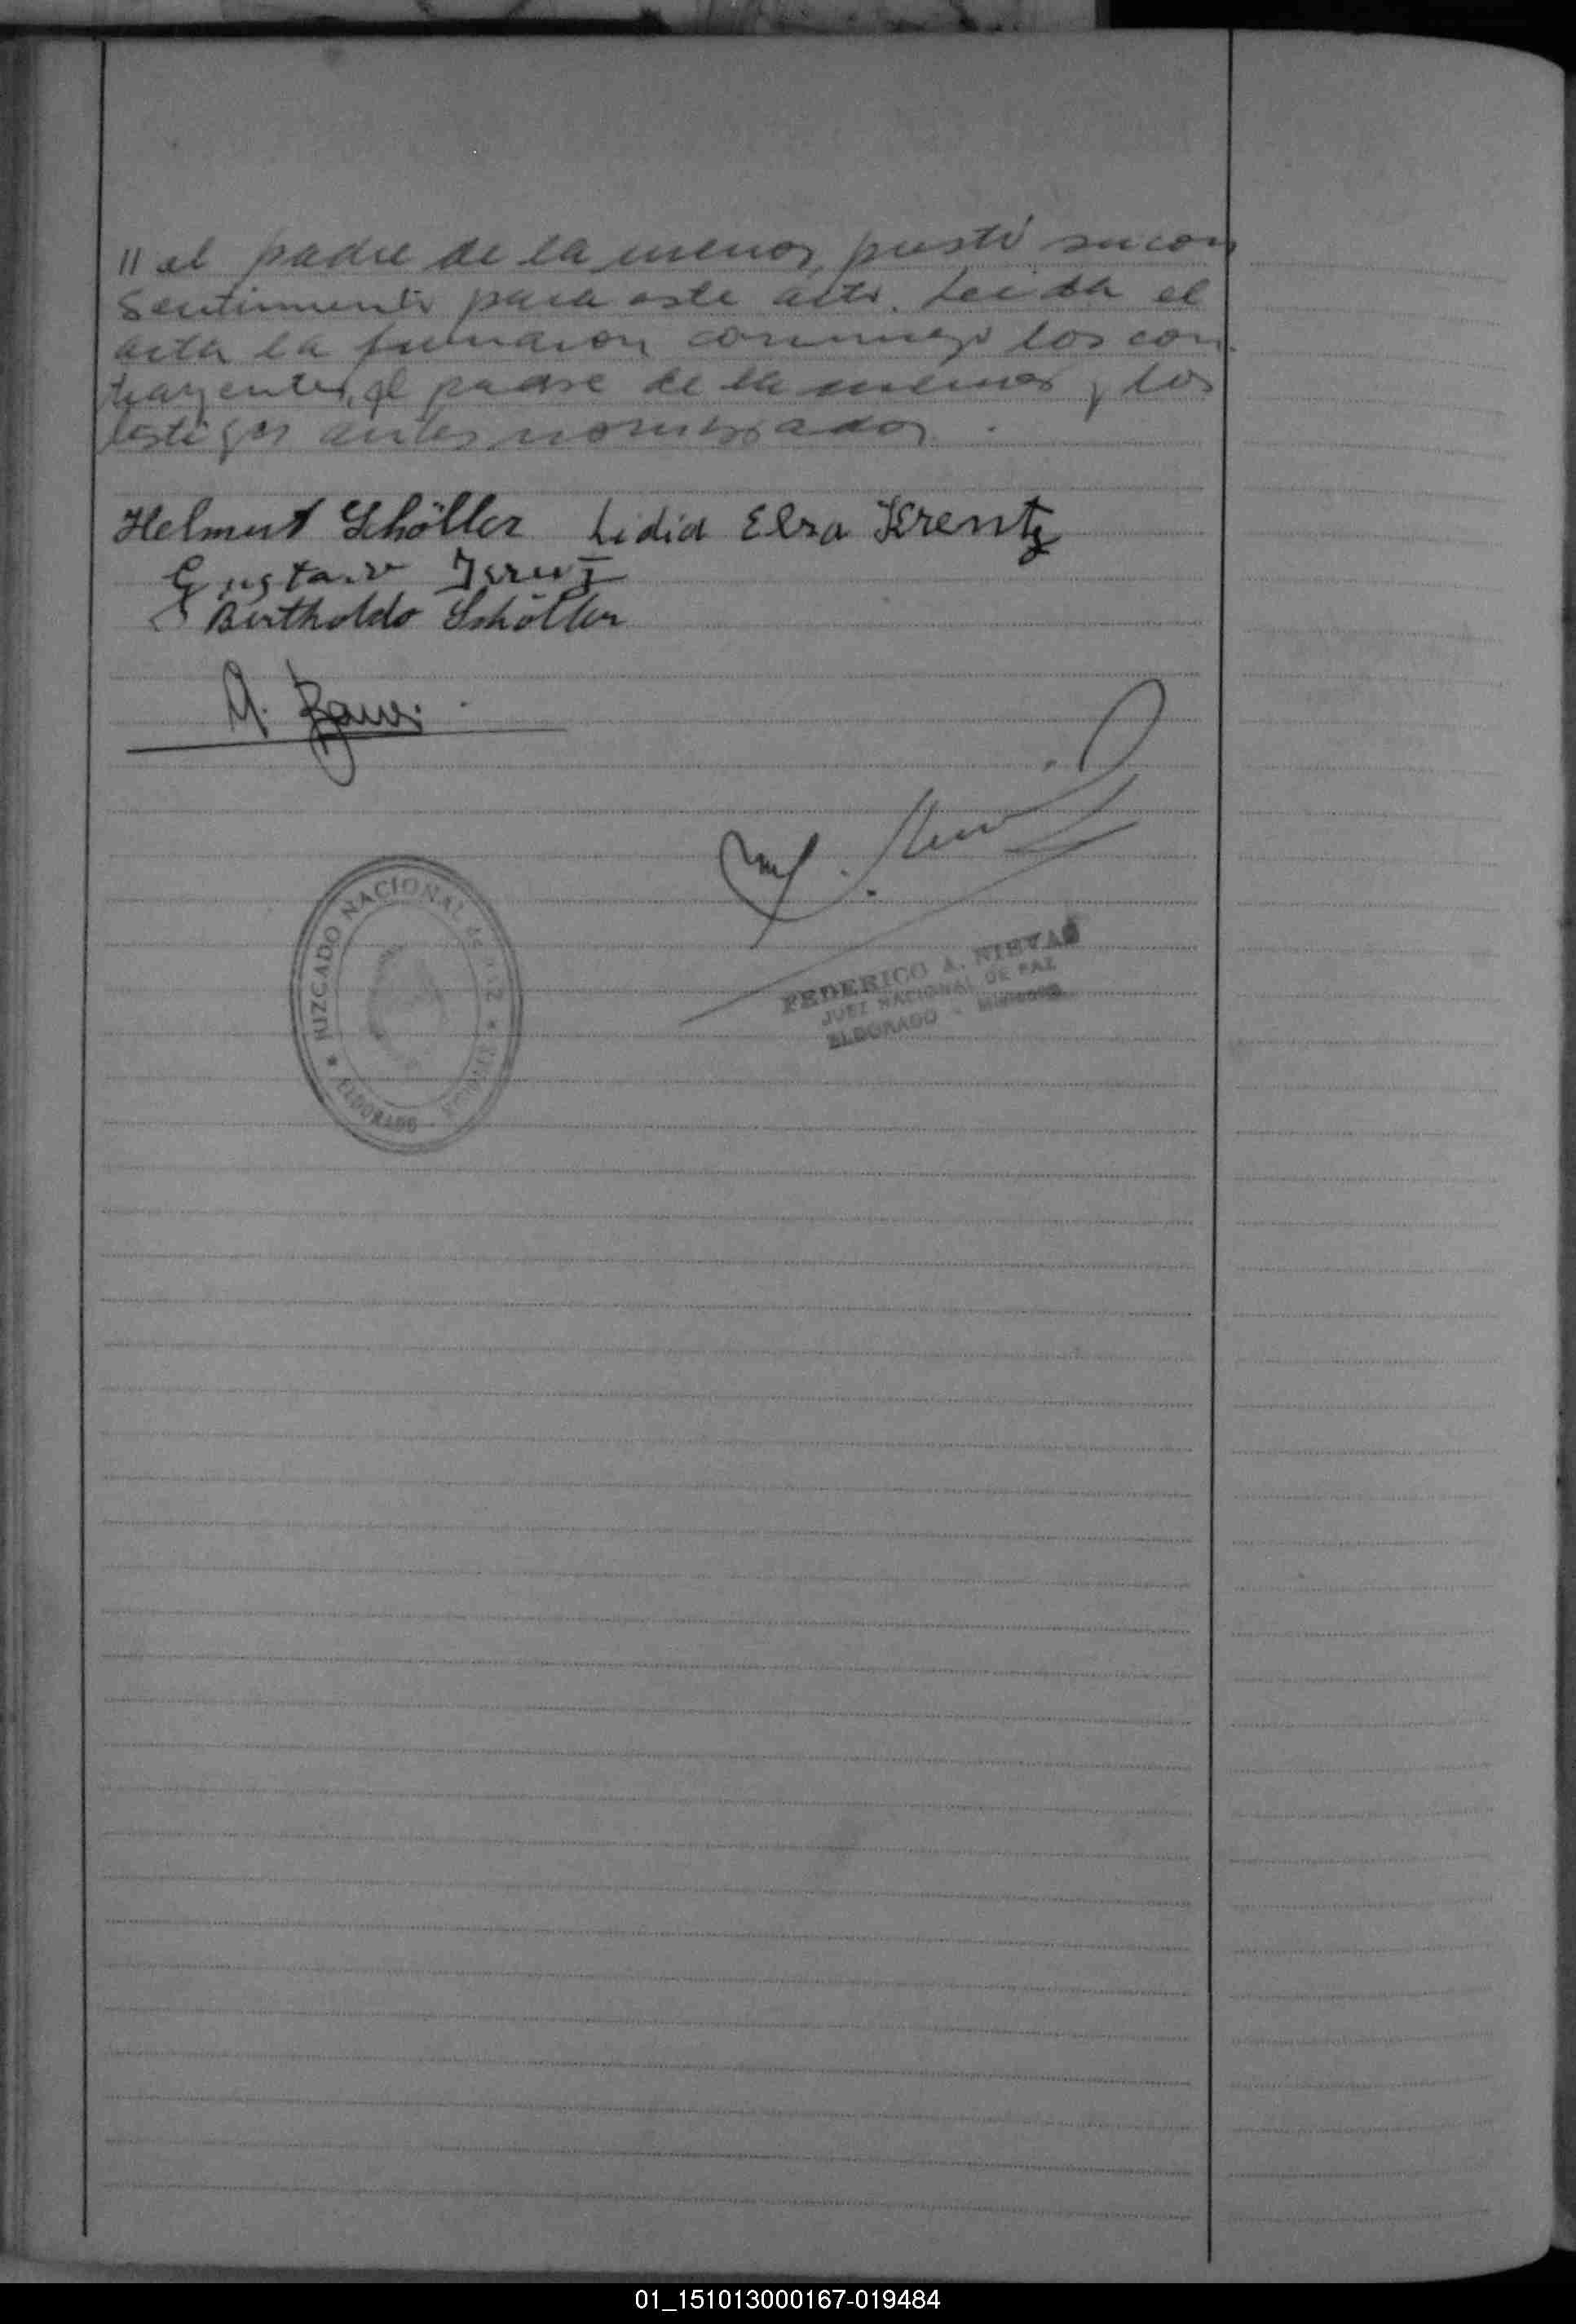 11 el padre de la menor, prestó su con
sentimiento para este acto. Leida el
acta la firmaron conmigo los con
trayentes, el padre de la menor y los
testigos antes nombrados.
Helmut Schöller Lidia Elsa Krentz
Gustavo
Bertholdo Schöller
JUZGADO NACIONAL DE PAZ
ELDORADO
FEDERICO A. NIEVAS
JUEZ NACIONAL DE PAZ
ELDORADO - MISIONES
01_151013000167-019484